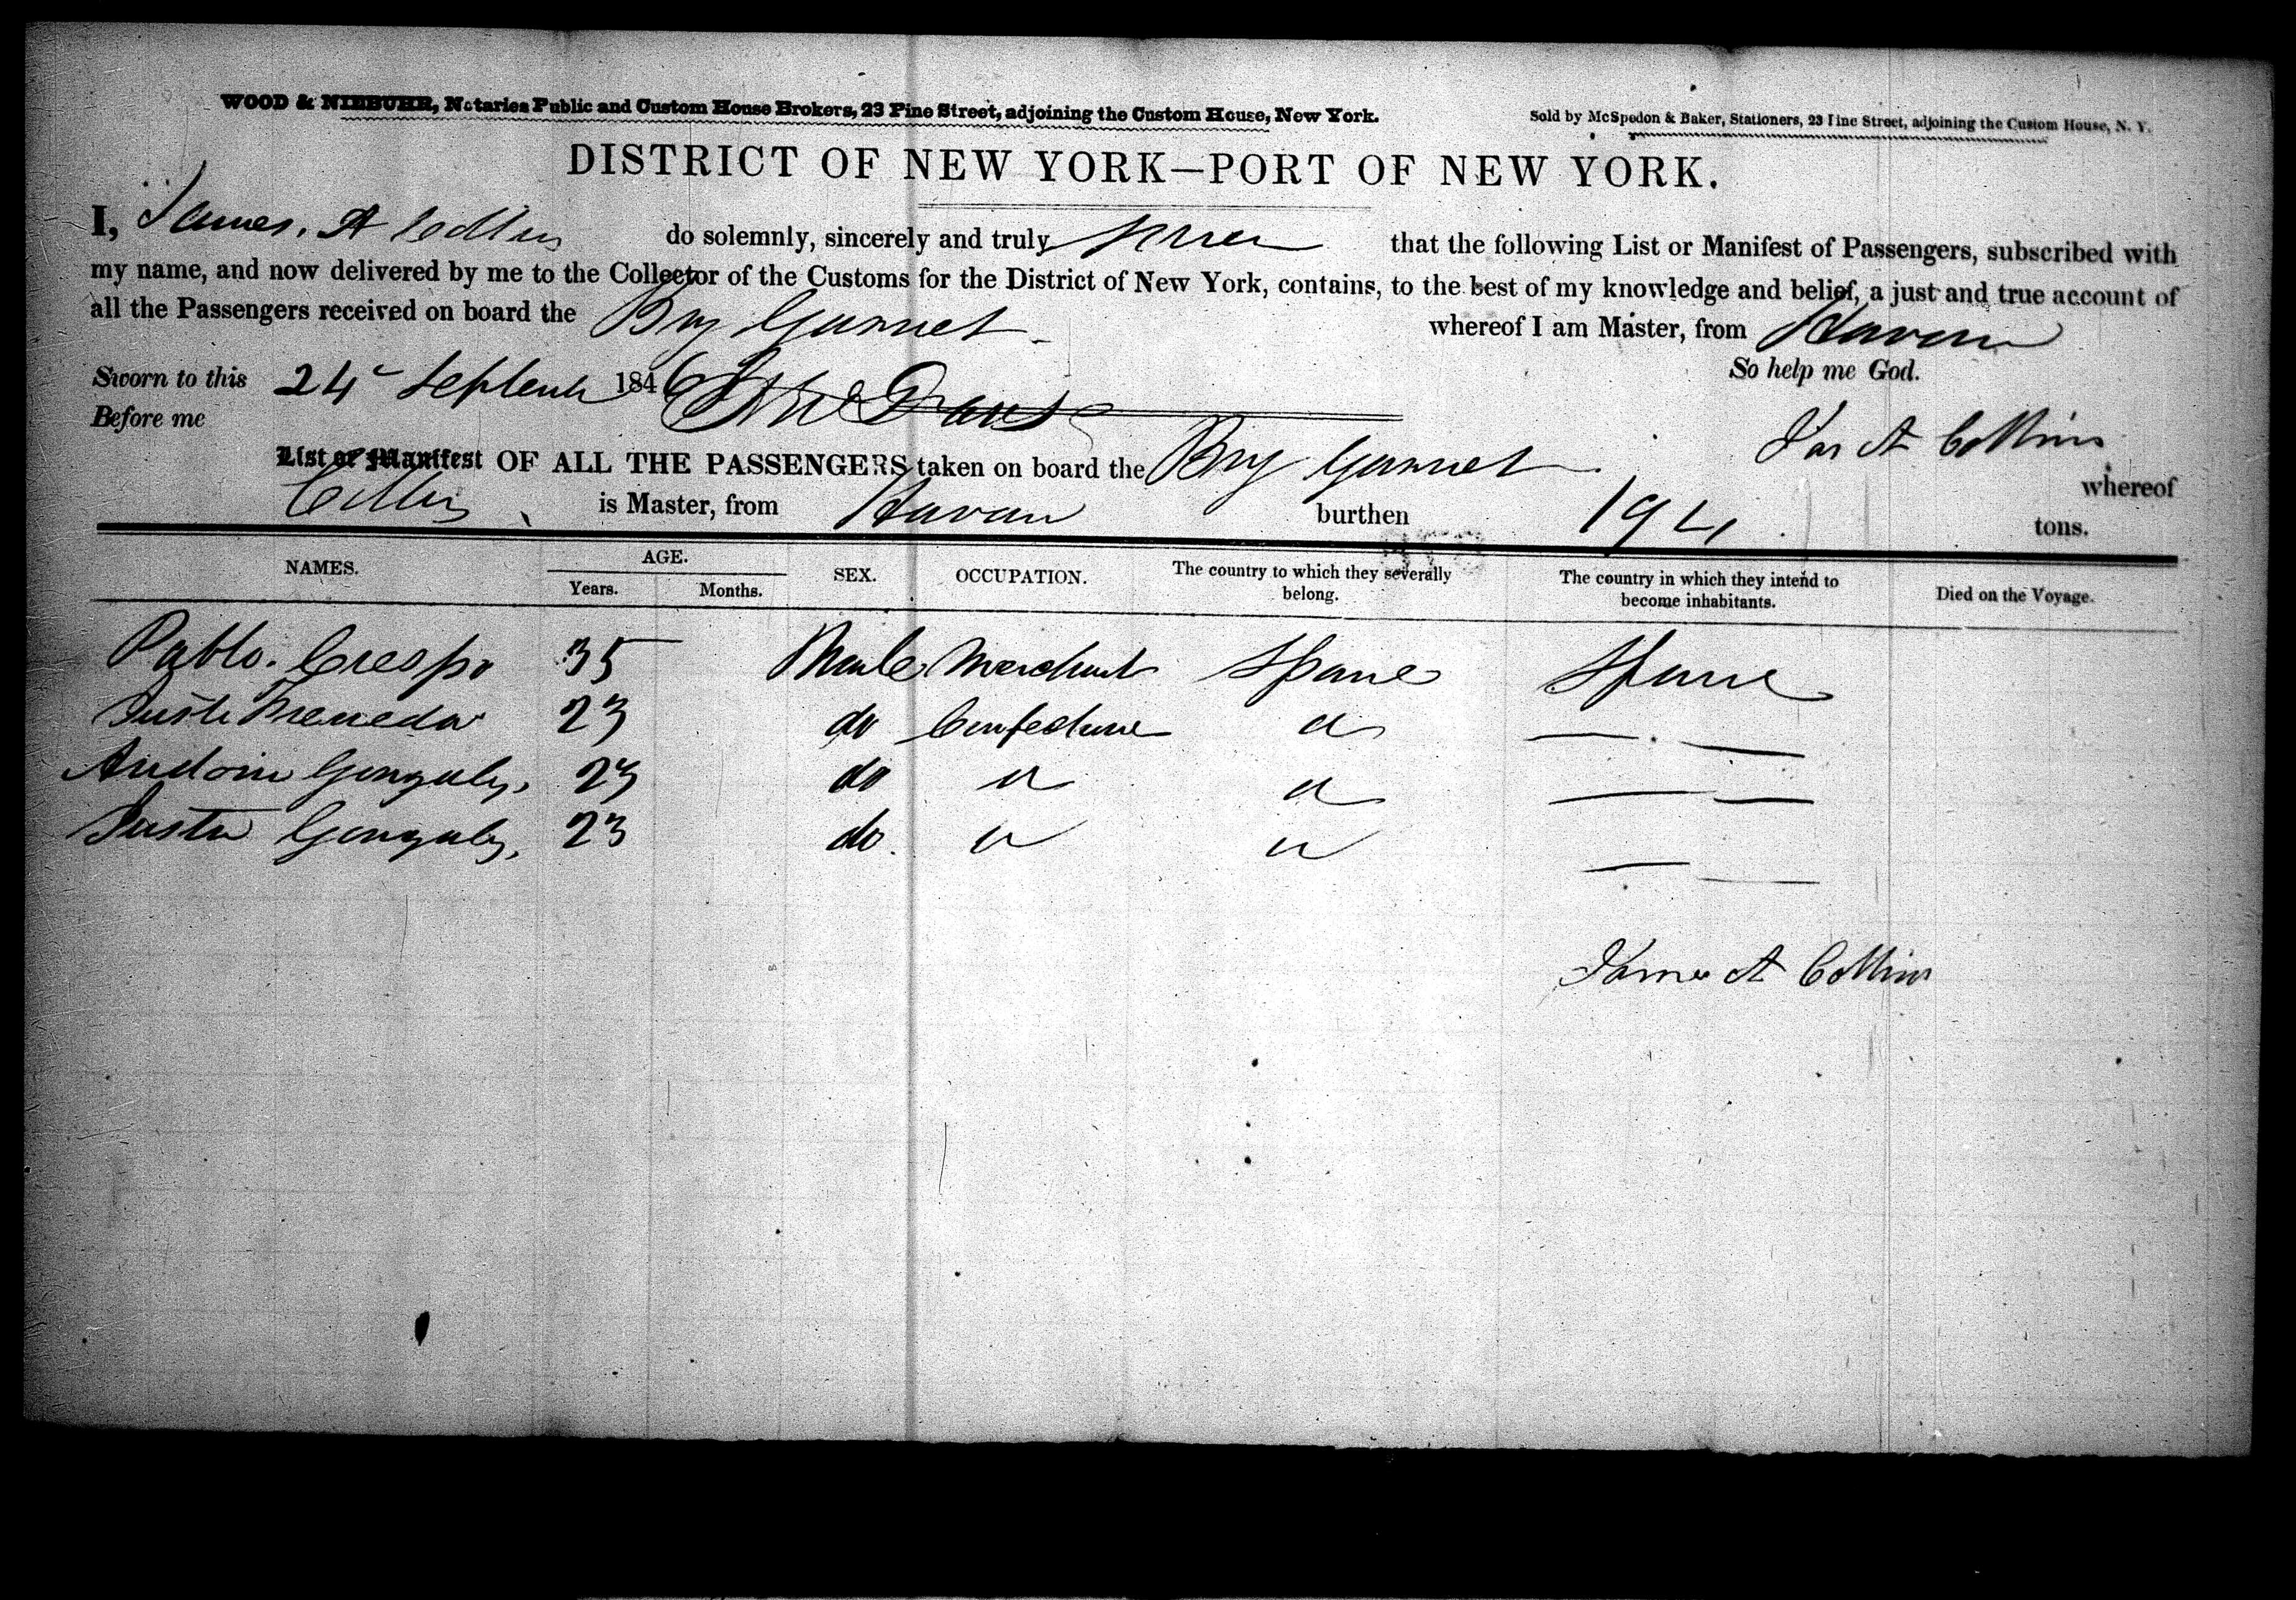 WOOD & NIEBUHR, Notaries Public and Custom House Brokers, 23 Pine Street, adjoining the Custom House, New York.
Sold by McSpedon & Baker, Stationers, 23 Pine Street, adjoining the Custom House, N. Y.
DISTRICT OF NEW YORK—PORT OF NEW YORK.
I, James. A Collins do solemnly, sincerely and truly swear that the following List or Manifest of Passengers, subscribed with
my name, and now delivered by me to the Collector of the Customs for the District of New York, contains, to the best of my knowledge and belief, a just and true account of
all the Passengers received on board the Brig Gannet whereof I am Master, from Havan
So help me God.
Sworn to this 24 September 1846
Before me
Jas A Collins
List or Manifest OF ALL THE PASSENGERS taken on board the Brig Gannet whereof
Collins is Master, from Havan burthen 194 tons.
NAMES. AGE. SEX. OCCUPATION. The country to which they severally belong. The country in which they intend to become inhabitants. Died on the Voyage.
Years. Months.
Pablo. Crespo 35 Male Merchant Spane Spane
23 do "
Gonzales, 23 do " "
Gonzales, 23 do. " "
James A Collins